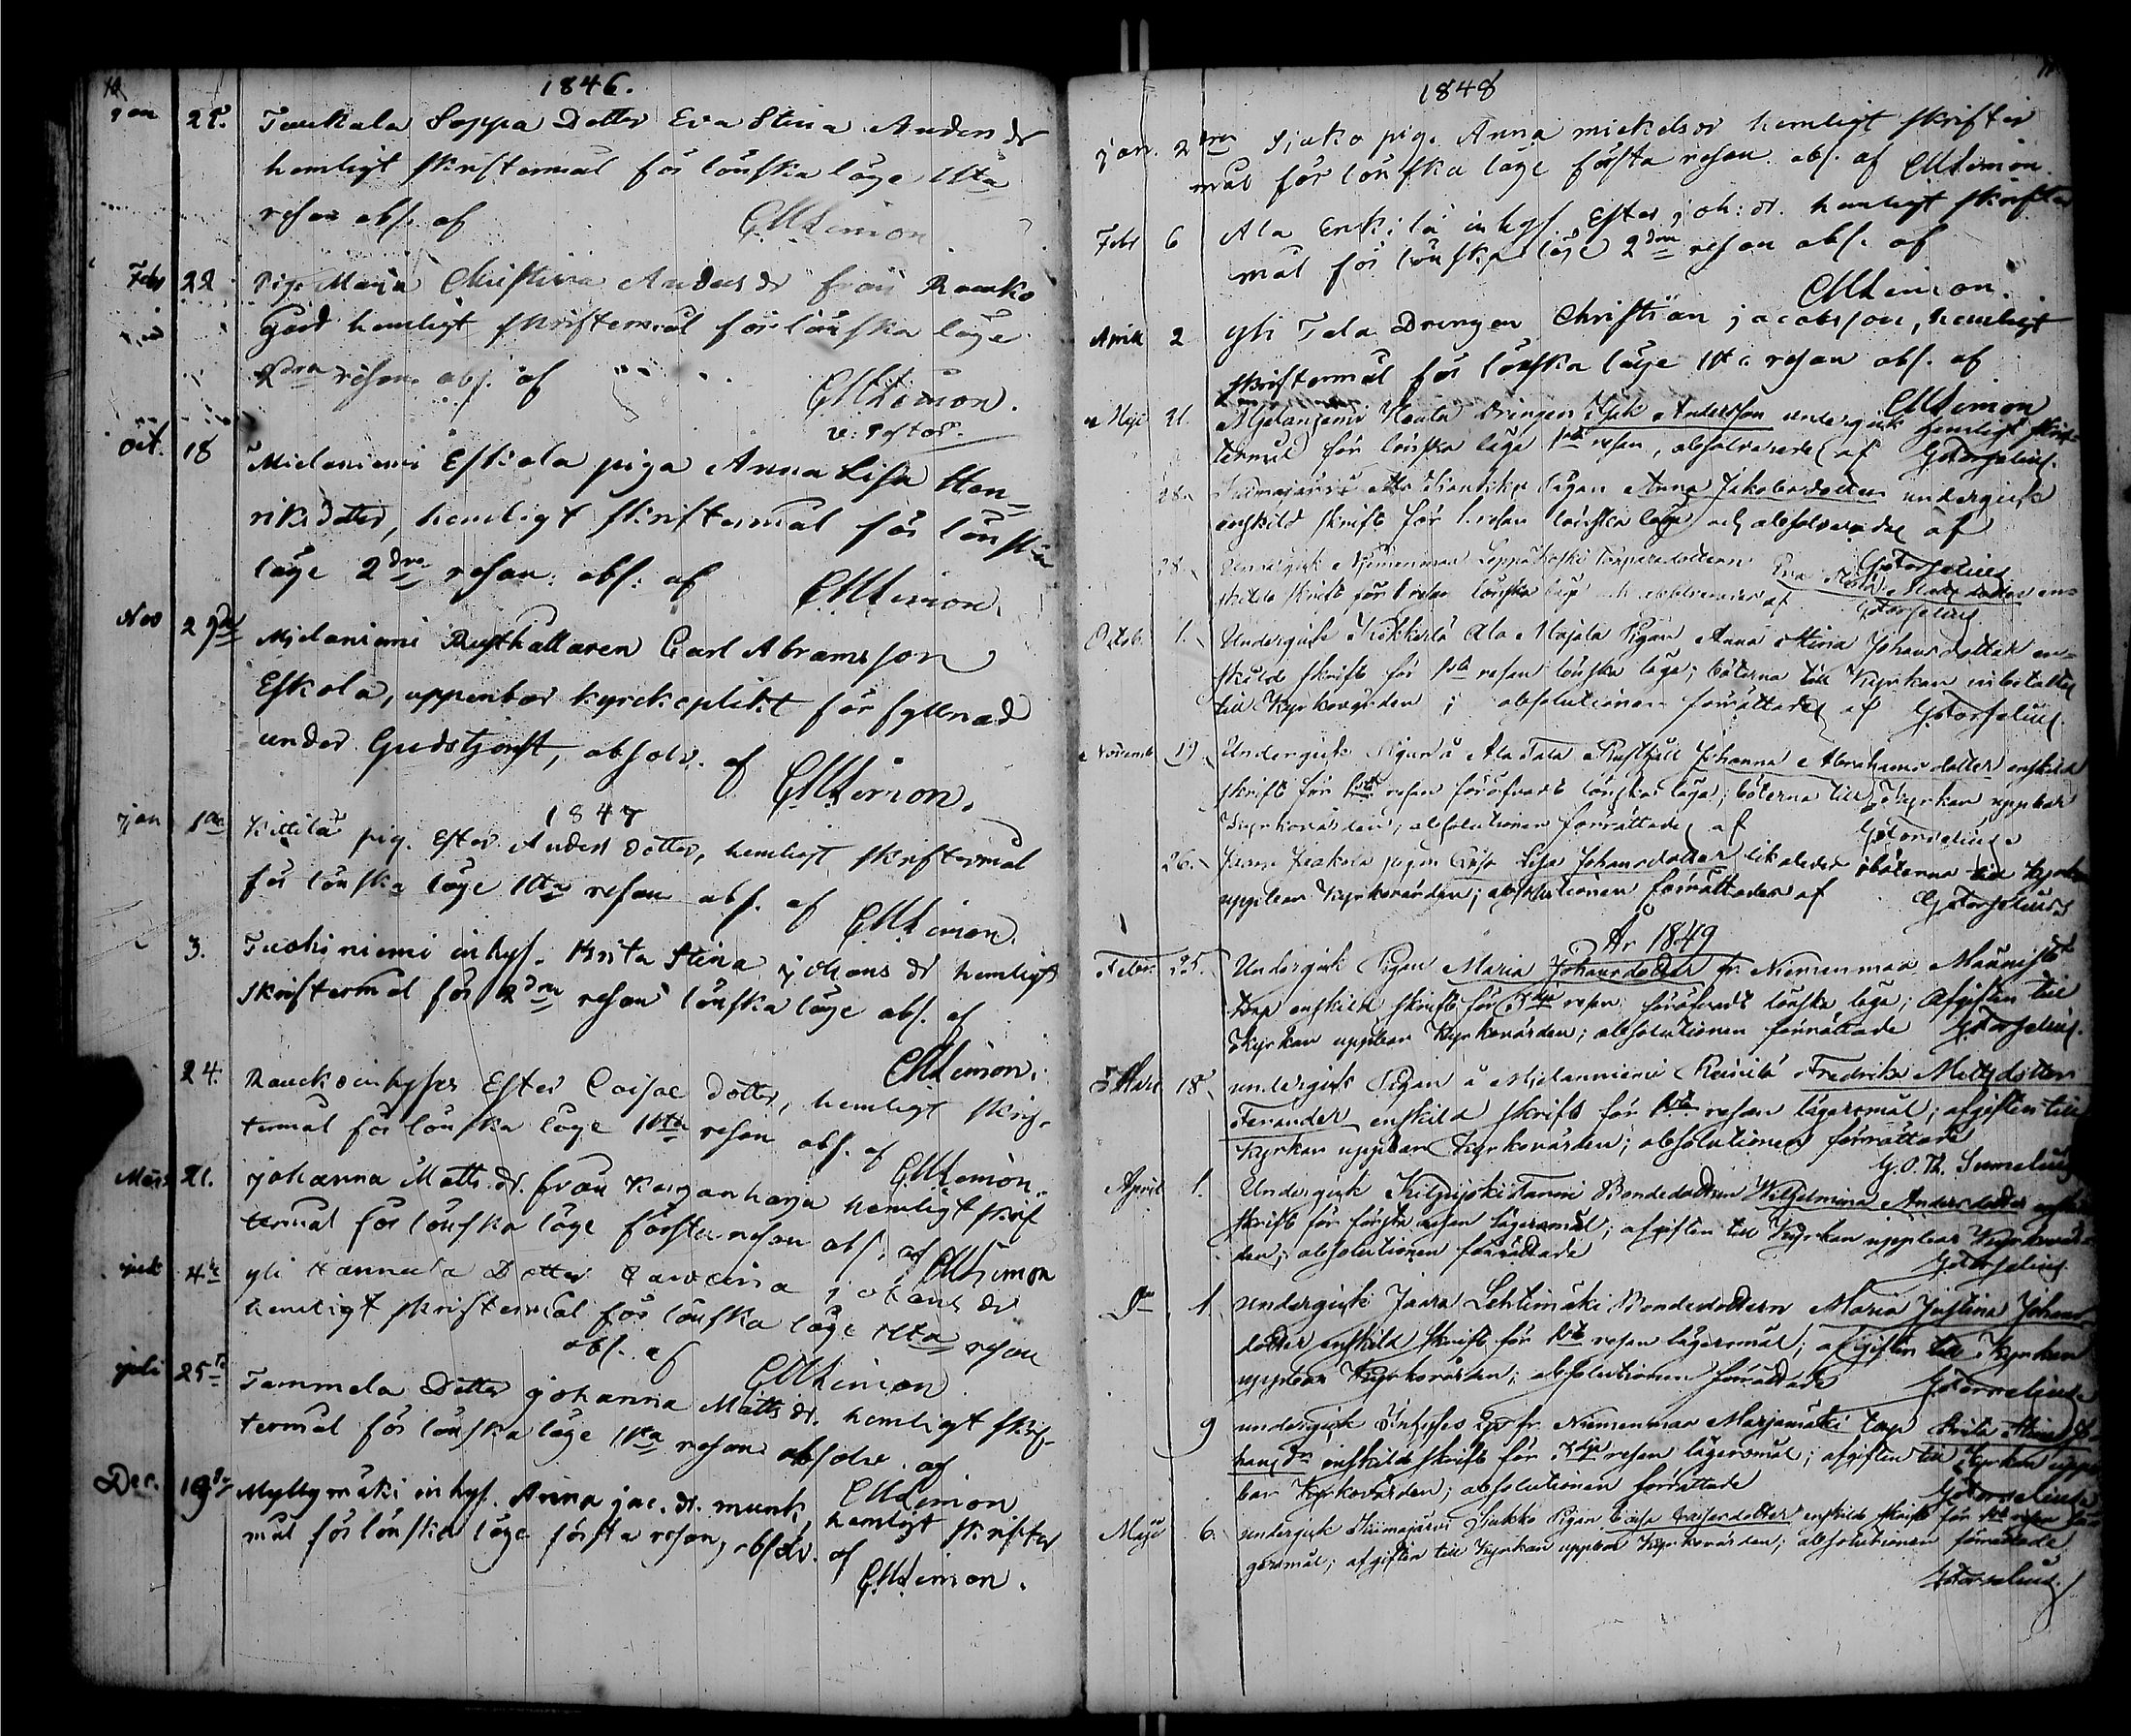 10
1846.
Jan 25. Taukala Seppa Dotter Eva Stina Anders dr
hemligt skriftermål för lönska läge 1sta
resan abs. af CMLimon
Febr 22 Pig. Maria Christina Anders dr från Rauko
Gård hemligt skriftermål för lönska läge
2dra resan abs. af CMLimon.
v: Pastor.
Oct. 18 Mielaniemi Eskola piga Anna Lisa Hen-
riksdotter, hemligt skriftermål för lönska
läge 2dra resan. abs. af CMLimon.
Nov 29de Mjelaniemi Rusthållaren Carl Abramsson
Eskola, uppenbar kyrckoplikt för fyllnad
under Gudstjenst, absolv. af CMLimon.
1847
Jan 1a Kittilä pig. Ester Anders dotter, hemligt skriftermål
för lönska läge 1sta resan abs. af CMLimon.
3. Tuokiniemi inhys. Brita Stina Johans dr hemligt
skriftermål för 2dra resan lönska läge abs. af
CMLimon.
24. Rauck inhyses Ester Caisae dotter, hemligt skrif-
termål för lönska läge 1sta resan abs. af CMLimon.
Mars 21. Johanna Matts dr. från Karjanharja hemligt skrif
termål för lönska läge första resan abs. af CMLimon
4 yli Hannula Dotter Johans dr
hemligt skriftermål för lönska läge 1sta resan
abs. af CMLimon
juli 25 Tammela Dotter Johanna Matts dr. hemligt skrif-
termål för lönska läge 1sta resan absolv. af
CMLimon
Dec. 19 Myllymäki inhys. Anna Jac. dr. munk, hemligt skrifter
mål för lönska läge första resan, absolv. af
CMLimon.
11
1848
jan. 2 Sjako pig. Anna Mickelsdr hemligt skrifter
mål för lönska läge första resan. abs. af CMLimon.
Febr 6 Ala Erkilä inhys. Ester Joh: dr. hemligt skrifter
mål för lönska läge 2dra resan abs. af
CMLimon.
April 2 yli Tala Drengen Christian Jacobsson, hemligt
skriftermål för lönska läge 1sta resan abs. af
CMLimon
Maji 21. Mjelaniemi Drängen Isak Andersson undergick hemligt skrif-
termål för lönska läge 1sta resan, absolverades af GOTorselius.
28. Pigan Anna Jakobsdotter undergick
enskild skrift för 1. resan lönska läge och absolverades af
GOTorselius
28. Undergick Niemenmaa Leppäkoski Torparedottern Matsdotter en-
skild skrift för 1 resan lönska läge och absolverades af GOTorselius.
Octob. 1. Undergick Ala Majala Pigan Anna Stina Johansdotter en-
skild skrift för 1sta resan lönska läge; böterna till Kyrkan inbetaltes
till Kyrkovärden; absolutionen förrättades af GOTorselius.
Novemb 19. Undergick Pigan å Ala Tala Rusthåll Johanna Abrahamsdotter enskild
skrift för 1sta resan föröfvadt lönska läge; böterna till Kyrkan uppbar
Kyrkovärden; absolutionen förrättades af GOTorselius
26. pigan Caisa Lisa Johansdotter likaledes böterna till Kyrkan
uppbar Kyrkovärden; absolutionen förrättades af GOTorselius
År 1849
Febr. 25. Undergick Pigan Maria Johansdotter fr. Niemenmaa Männistö
torp enskild skrift för 3dje resan föröfvadt lönska läge; Afgiften till
Kyrkan uppbar Kyrkovärden; absolutionen förrättade GOTorselius.
Mars 18. undergick Pigan å Mjelanniemi Fredrika Mattsdotter
Ferander enskild skrift för 1sta resan lägersmål; afgiften till
Kyrkan uppbar Kyrkovärden; absolutionen förrättade
G.O.Th. Sumelius
April 1. Undergick Bondedottern Wilhelmina Andersdotter
skrift för första resan lägersmål; afgiften till Kyrkan uppbar Kyrkovär-
den; absolutionen förrättade GOTorselius
Do 1. undergick Jaara Lehtimäki Bondedottern Maria Justina Johans
dotter enskild skrift för 1sta resan lägersmål; afgiften till Kyrkan
uppbar Kyrkovärden; absolutionen förrättade GOTorselius
9 undergick Inhyses fr. Niemenmaa Marjamäki torp Stina Jo-
hans Dr enskild skrift för 3dje resan lägersmål; afgiften till Kyrkan upp-
bar Kyrkovärden; absolutionen förrättade GOTorselius
Maji 6. undergick Pigan Caisa enskild skrift för 1sta resan lä-
gersmål; afgiften till Kyrkan uppbar Kyrkovärden; absolutionen förrättade
GOTorselius.